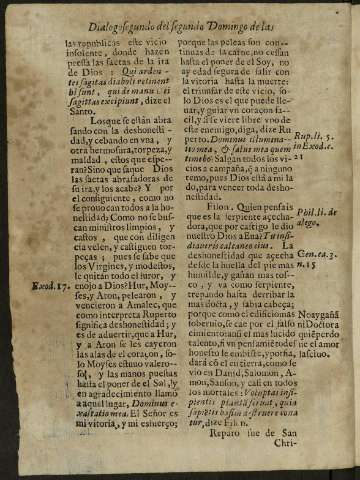 Dialogo segundo del segundo Domingo de las
las republicas este vicio
insolente, donde hazen
pressa las saetas de la ira
de Dios: Qui arden-
tes sagittas diaboli retinent
hi sunt, qui de manu Dei
sagittas excipiunt, dize el
Santo.
Los que se están abra
sando con la deshonesti-
dad, y cebando en vna, y
otra hermosura, torpeza, y
maldad, estos que espe-
ran? Sino que saque Dios
las saetas abrasadoras de
su ira, y los acabe? Y por
el consiguiente, como no
se prouocan todos a la ho-
nestidad; Como no se bus-
can ministros limpios, y
castos, que con diligen
cia velen, y castiguen tor-
peças; pues se sabe que
los Virgines, y modestos,
le quitàn todo el furor, y
enojo a Dios? Hur, Moy-
ses, y Aron, pelearon, y
vencieron a Amalec, que
como interpreta Ruperto
significa deshonestidad; y
es de aduertir, que a Hur,
y a Aron se les cayeron
las alas del coraçon, so-
lo Moyses estuuo valero-
so, y las manos puestas
hasta el poner del Sol, y
en agradecimiento llamò
a aquel lugar, Dominus e-
xaltatio mea. El Señor es
mi vitoria, y mi esfuerço;
Exod. 17.
porque las peleas son con-
tinuas de la carne, no cessan
hasta el poner de el Soy, no
ay edad segura de salir con
la vitoria hasta la muerte:
el triunfar de este vicio, so-
lo Dios es el que puede lle-
nar, y guiar vn coraçon fa-
cil, y assi se viere libre vno de
este enemigo, diga, dize Ru
perto. Dominus illumina-
tio mea, & salus mea quem
timebo? Salgan todos los vi-
cios a campaña, ò a ninguno
temo, pues Dios está a mi la
do, para vencer toda desho-
nestidad.
Filon. Quien pensais
que es la serpiente acecha-
dora, que por castigo le dio
nuestro Dios a Eua? Tu insi-
diaueris calcaneo eius. La
deshonestidad que acecha
desde la huella del pie mas
humilde, y gañan mas tos-
co, y va como serpiente,
trepando hasta derribar la
mas docta, y sabia cabeça;
porque como el edificio mas
soberuio, se cae por el falso ci
miento; assi el mas lucido
talento, si vn pensamiẽto des-
honesto le embiste, y porfia,
darà cõ el en tierra, como se
vio en Dauid, Salomon, A-
mon, Sanson, y casi en todos
los mortales: Voluptas insi-
pientis plantã ferint, quia
sapiẽtis basim a struere cona
tur, dize Filon.
Reparo fue de San
Chri-
Rup. li. 5.
in Exod. c.
21
Phil. li. de
alego.
Gen. ca. 3.
n. 15
No ay gañã
ni Doctor a
quiẽ perdo
ne el amor
lasciuo.